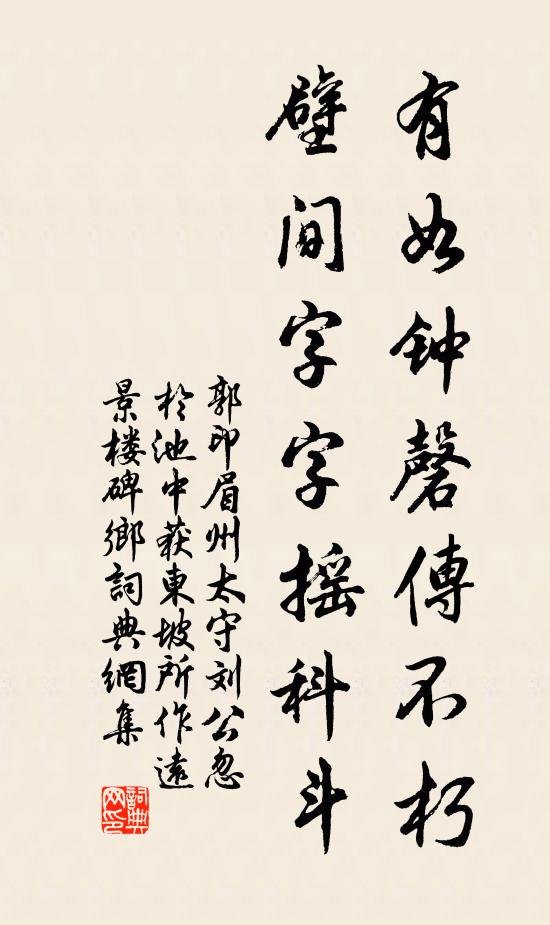 有如钟磬傳不朽
壁间字字摇科斗
郭印眉州太守刘公忽
於池中获東坡所作遠
景楼碑鄉詞典網集
詞典网印